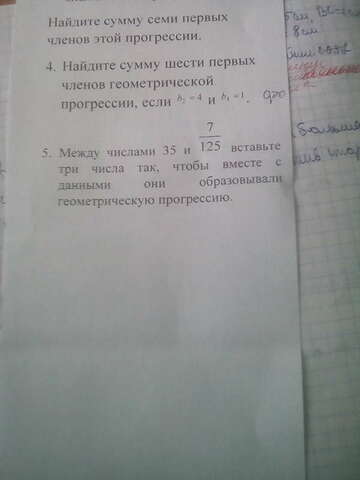 Найдите сумму семи первых
членов этой прогрессии.
4. Найдите сумму шести первых
членов геометрической
прогрессии, если b₂ = 4 и b₄ = 1. q>0
5. Между числами 35 и 7/125 вставьте
три числа так, чтобы вместе с
данными они образовывали
геометрическую прогрессию.
8 см